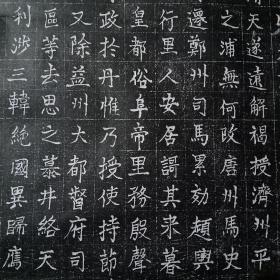 天遂遠解褐授濟州平
之浦無何改唐州馬史
遷鄭州司馬累効趨輿
行里人安居謌其来暮
皇都俗阜帝里務殷聲
政於丹惟乃授使持節
又除益州大都督府司
區等去思之慕井絡天
利涉三韓絶國異歸鷹